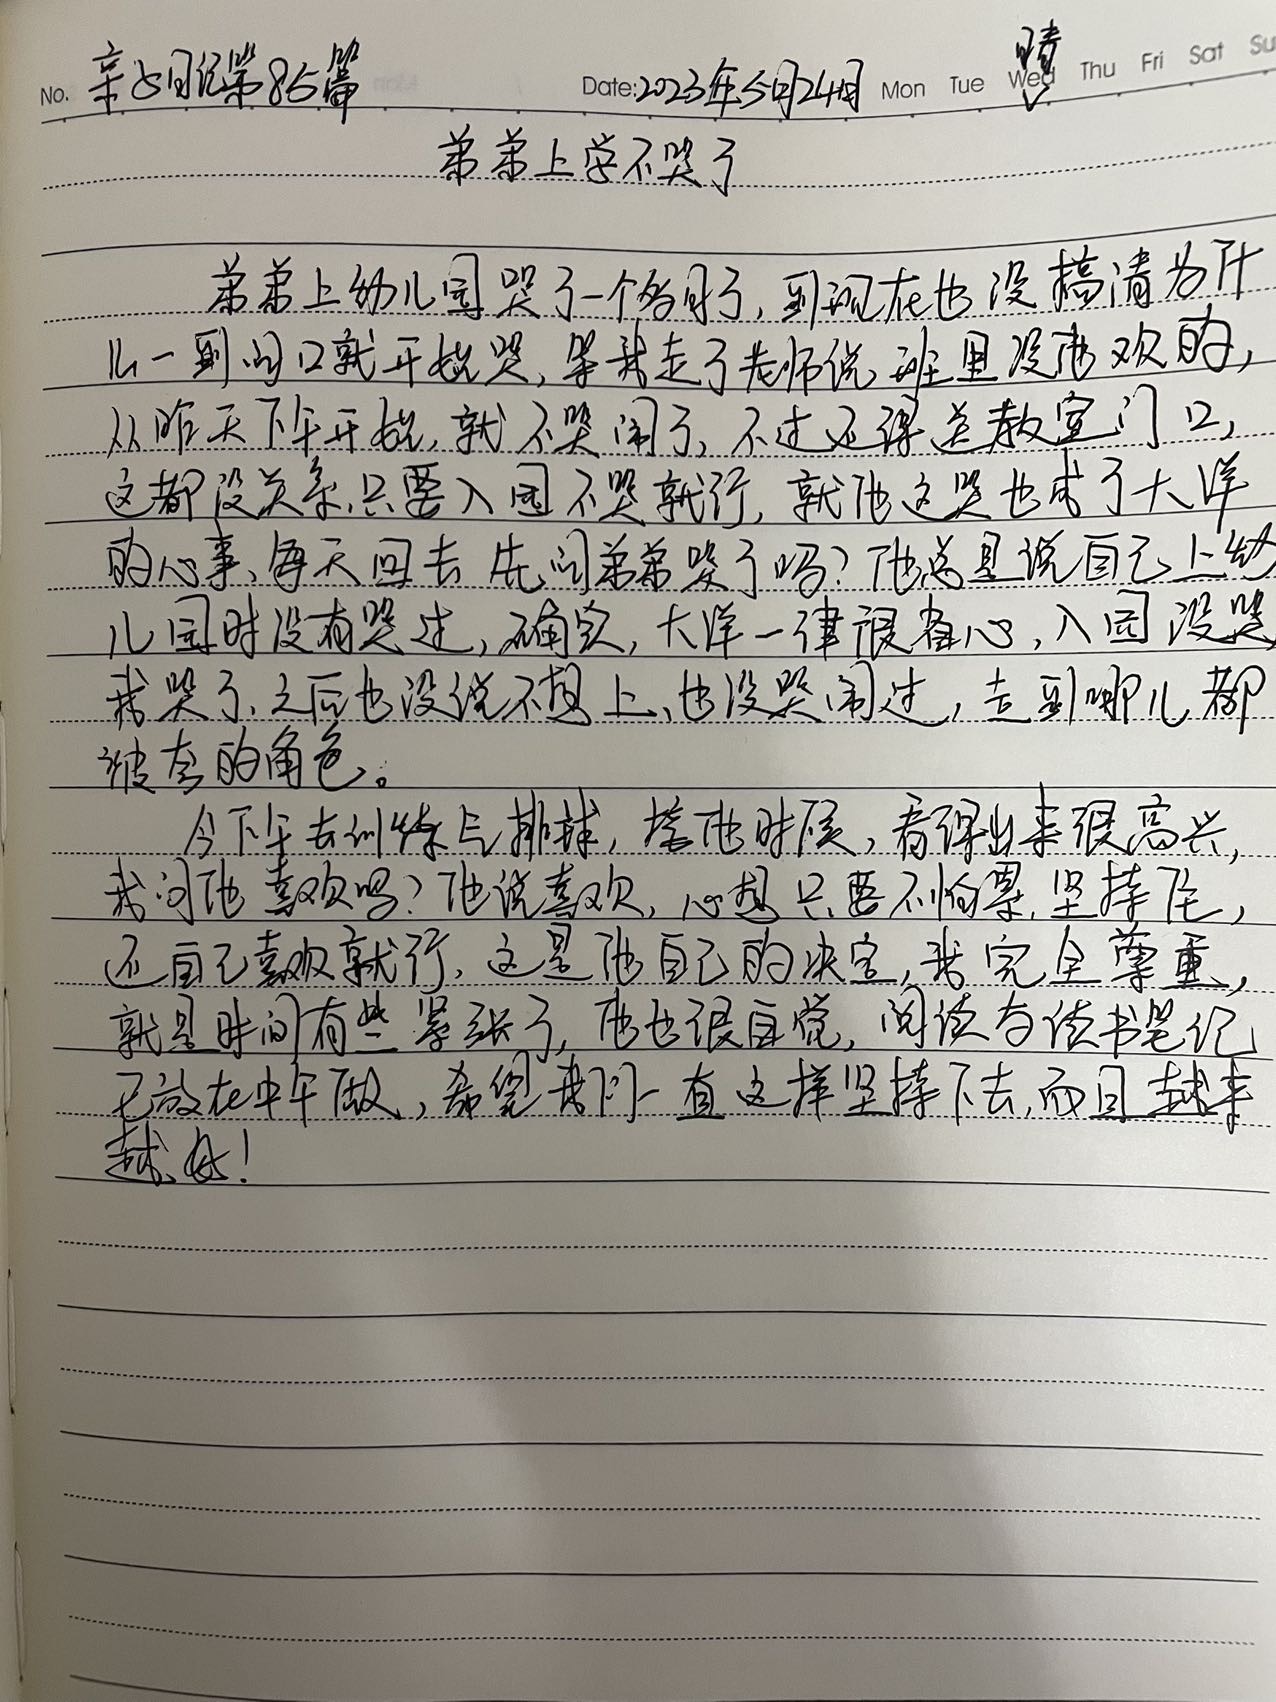 No. 亲子日记第85篇 Date:2023年5月24日 晴 Mon Tue Wed Thu Fri Sat Su
弟弟上学不哭了
弟弟上幼儿园哭了一个多月了,到现在也没搞清为什
么一到门口就开始哭,等我走了老师说班里没他欢的,
从昨天下午开始,就不哭闹了,不过还得送教室门口,
这都没关系,只要入园不哭就行,就他这哭也成了大洋
的心事,每天回去先问弟弟哭了吗?他总是说自己上幼
儿园时没有哭过,确实,大洋一律很省心,入园没哭
我哭了,之后也没说不想上,也没哭闹过,走到哪儿都
被夸的角色。
今下午去训练气排球,接他时候,看得出来很高兴,
我问他喜欢吗?他说喜欢,心想只要不怕累,坚持住,
还自己喜欢就行,这是他自己的决定,我完全尊重,
就是时间有些紧张了,他也很自觉,阅读与读书笔记
已放在中午做,希望我们一直这样坚持下去,而且越来
越好!